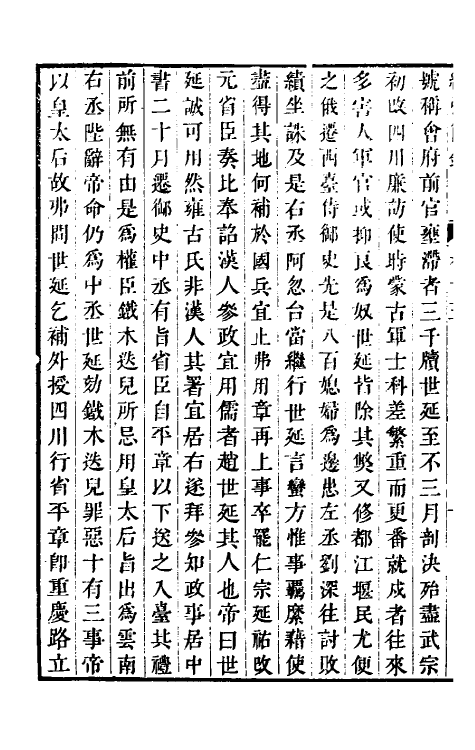 號稱會府前官壅滯者三千牘世延至不三月剖決殆盡武宗
初改四川廉訪使時蒙古軍士科差繁重而更番就戍者往來
多害人軍官或抑良爲奴世延皆除其獘又修都江堰民尤便
之俄遷西臺侍御史先是八百媳婦爲邊患左丞劉深往討敗
績坐誅及是右丞阿忽台當繼行世延言蠻方惟事羈縻藉使
盡得其地何補於國兵宜止弗用章再上事卒罷仁宗延祐改
元省臣奏比奉詔漢人參政宜用儒者趙世延其人也帝曰世
延誠可用然雍古氏非漢人其署宜居右遂拜參知政事居中
書二十月遷御史中丞有旨省臣自平章以下送之入臺其禮
前所無有由是爲權臣鐵木迭兒所忌用皇太后旨出爲雲南
右丞陛辭帝命仍爲中丞世延劾鐵木迭兒罪惡十有三事帝
以皇太后故弗問世延乞補外授四川行省平章卽重慶路立